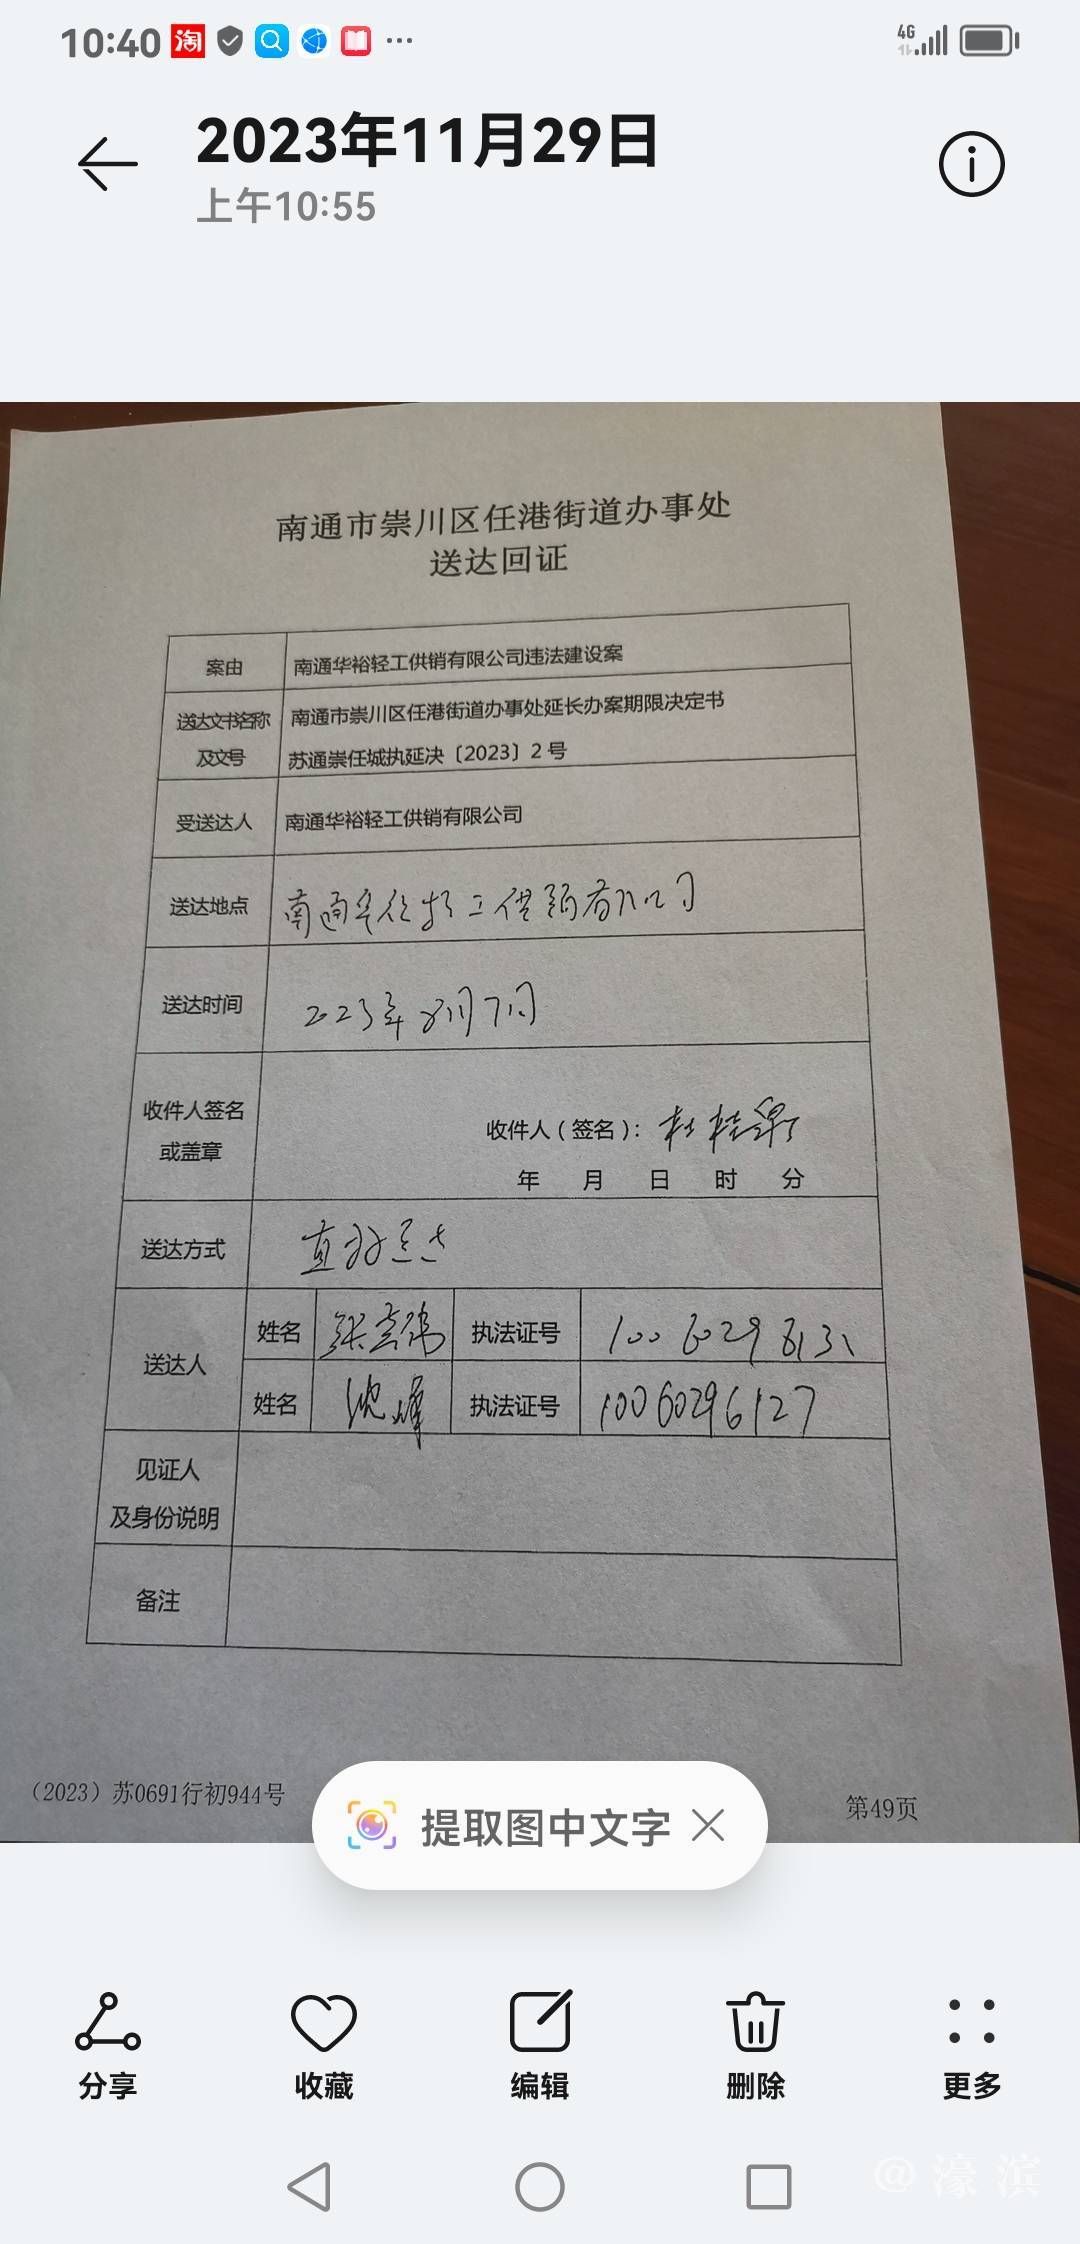 10:40 淘 4G
2023年11月29日
上午10:55
南通市崇川区任港街道办事处
送达回证
案由 南通华裕轻工供销有限公司违法建设案
送达文书名称及文号 南通市崇川区任港街道办事处延长办案期限决定书
苏通崇任城执延决〔2023〕2号
受送达人 南通华裕轻工供销有限公司
送达地点 南通华裕轻工供销有限公司
送达时间 2023年8月7日
收件人签名
或盖章
收件人(签名): 杜桂
年 月 日 时 分
送达方式 直接送达
送达人
姓名 张 执法证号 1006029613
姓名 沈峰 执法证号 10060296127
见证人
及身份说明
备注
(2023)苏0691行初944号 第49页
提取图中文字
分享 收藏 编辑 删除 更多
@濠滨